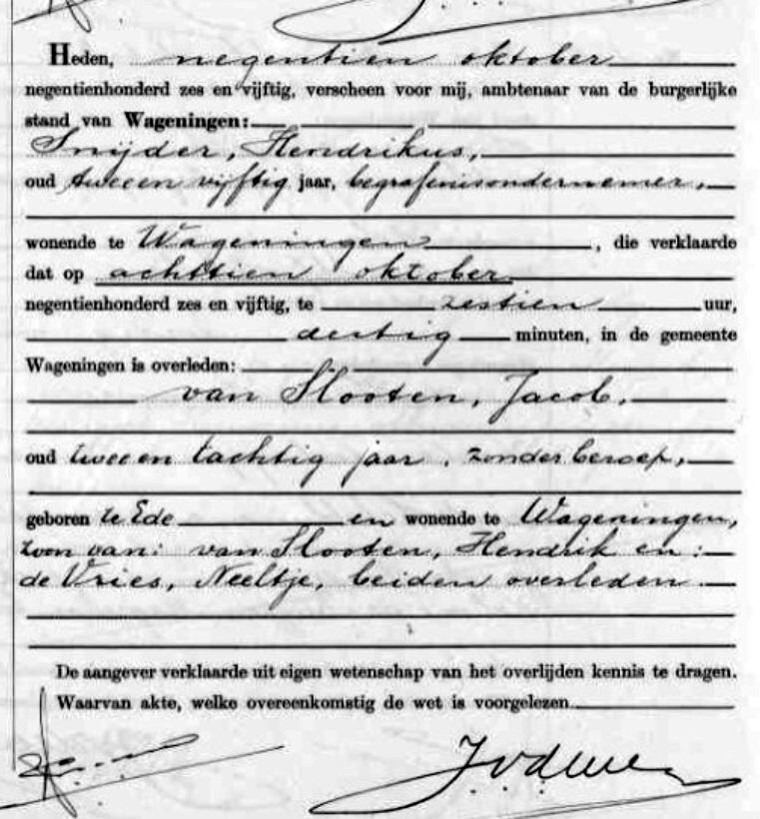 Heden, negentien oktober
negentienhonderd zes en vijftig, verscheen voor mij, ambtenaar van de burgerlijke
stand van Wageningen:
Snijder, Hendrikus,
oud tweeen vijftig jaar, begrafenisondernemer,
wonende te Wageningen, die verklaarde
dat op achttien oktober
negentienhonderd zes en vijftig, te zestien uur,
dertig minuten, in de gemeente
Wageningen is overleden:
van Slooten, Jacob,
oud tweeen tachtig jaar, zonder beroep,
geboren te Ede en wonende te Wageningen,
zoon van: van Slooten, Hendrik en:
de Vries, Neeltje, beiden overleden.
De aangever verklaarde uit eigen wetenschap van het overlijden kennis te dragen.
Waarvan akte, welke overeenkomstig de wet is voorgelezen.